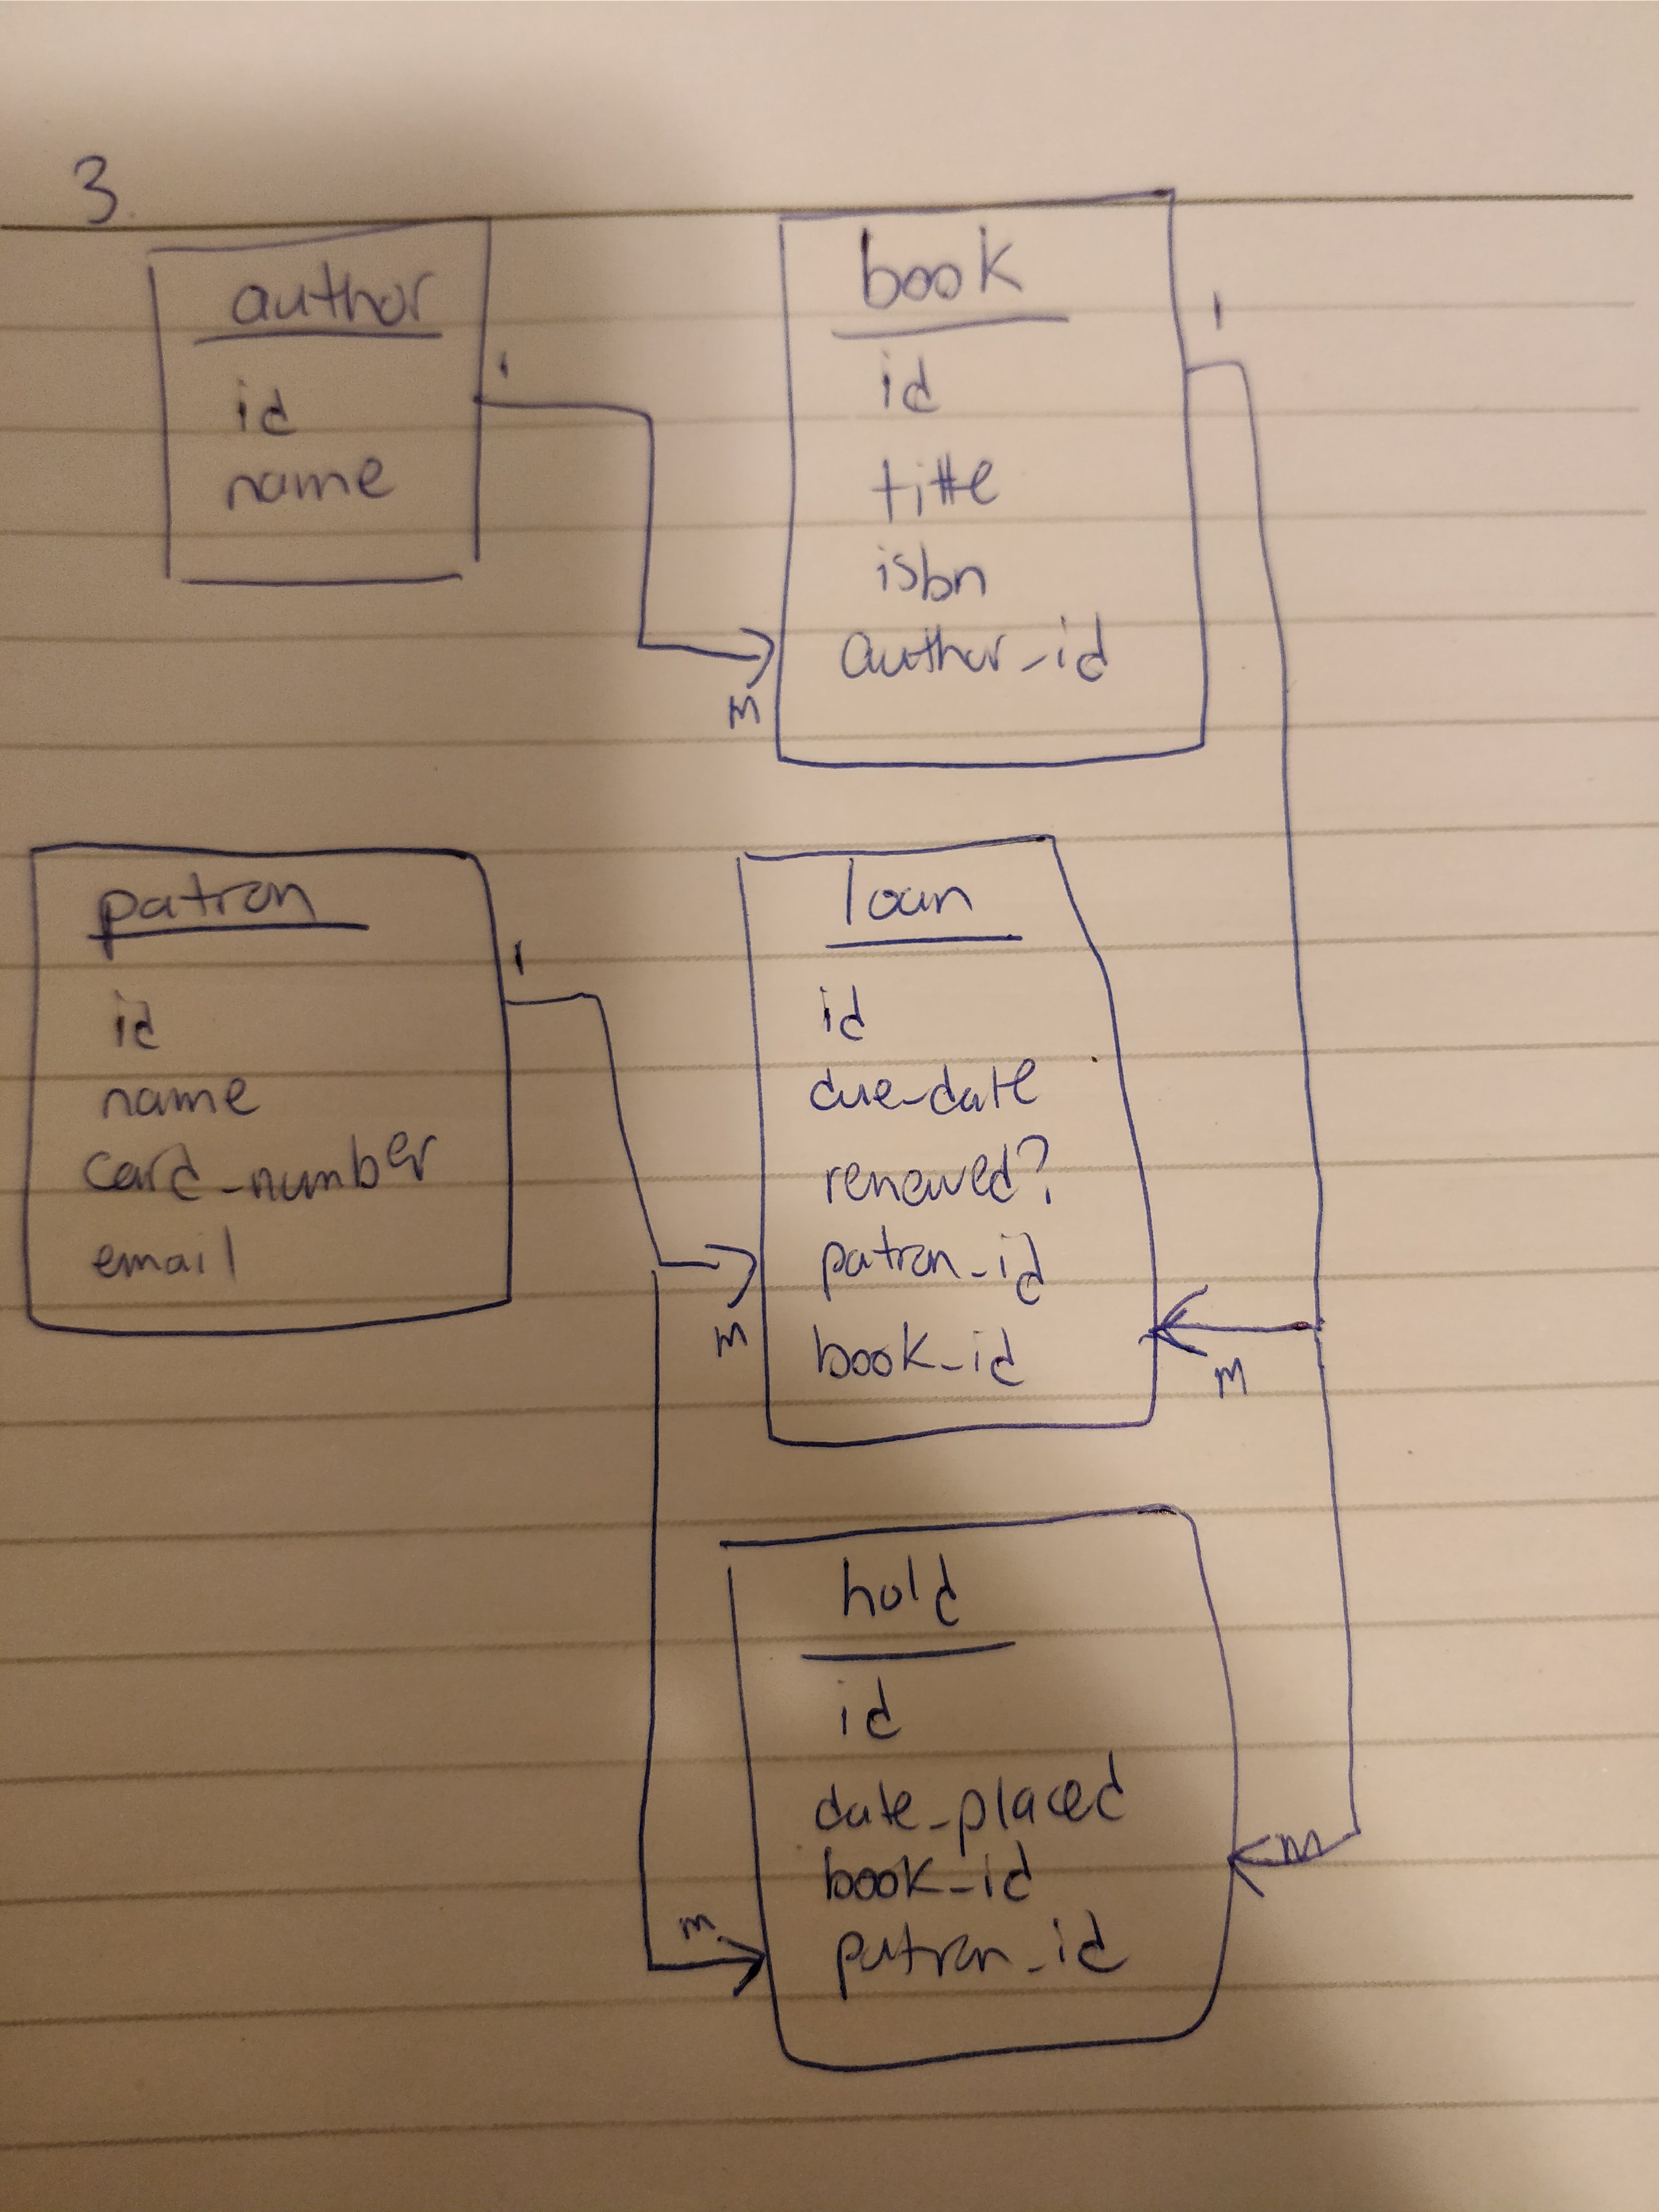 3.
author
id
name
1
m
book
id
title
isbn
author_id
1
patron
id
name
card_number
email
1
m
loan
id
due_date
renewed?
patron_id
book_id
m
hold
id
date_placed
book_id
patron_id
m
m